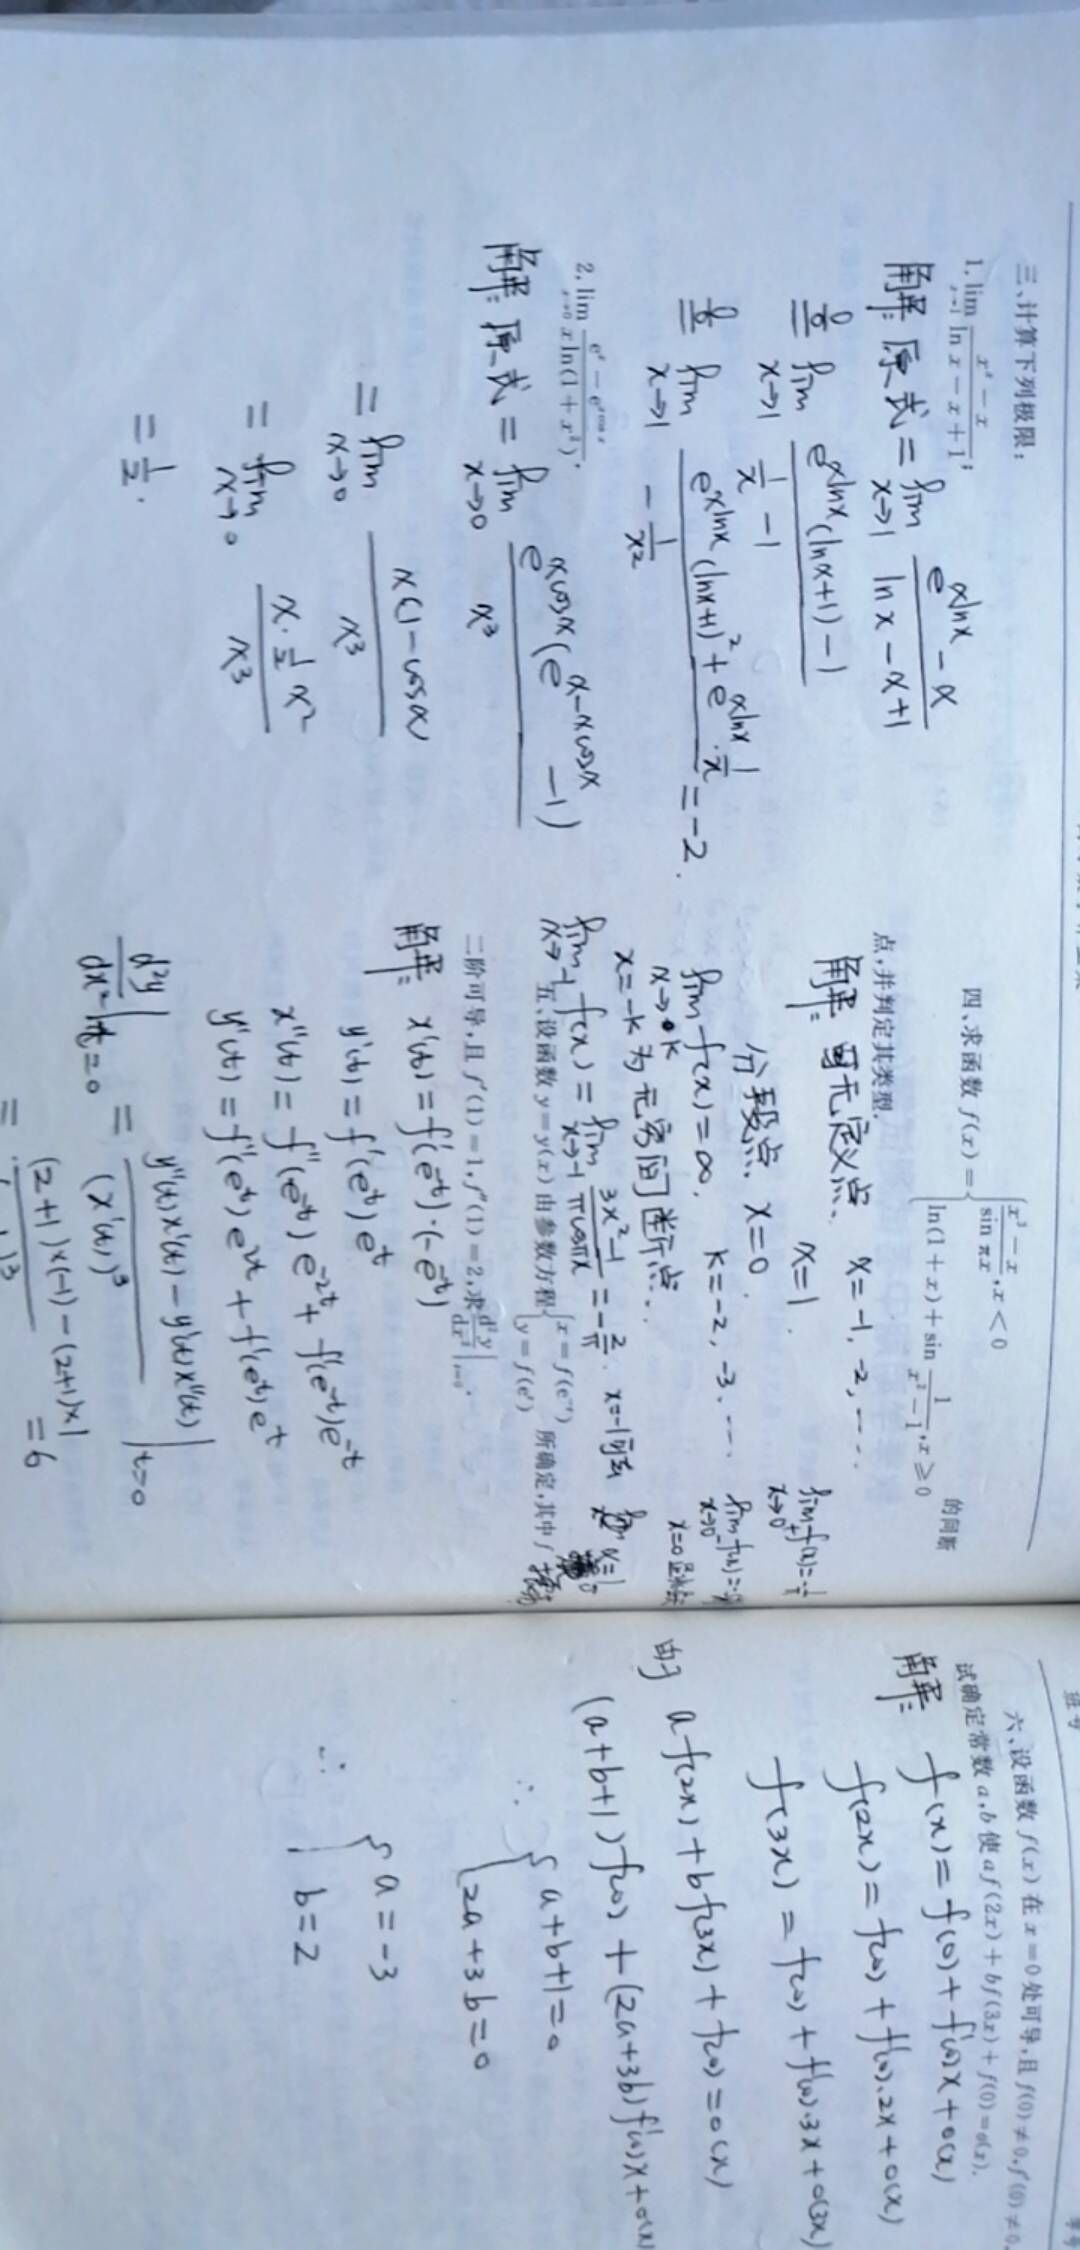 三、计算下列极限:
1. lim_{x→1} (x^x − x)/(ln x − x + 1);
解: 原式 = lim_{x→1} (e^{xlnx} − x)/(ln x − x + 1)
0/0 lim_{x→1} (e^{xlnx}(lnx+1) − 1)/(1/x − 1)
0/0 lim_{x→1} (e^{xlnx}(lnx+1)² + e^{xlnx}·1/x)/(−1/x²) = −2.
2. lim_{x→0} (e^x − e^{xcos x})/(x ln(1 + x²)).
解: 原式 = lim_{x→0} e^{xcosx}(e^{x−xcosx} − 1)/x³
= lim_{x→0} x(1 − cosx)/x³
= lim_{x→0} (x·½x²)/x³
= 1/2.
四、求函数 f(x) = { (x³ − x)/sin πx, x < 0
ln(1 + x) + sin 1/(x² − 1), x ≥ 0 的间断
点,并判定其类型.
解: 无定义点 x = −1, −2, ….
x = 1.
分段点 x = 0.
lim_{x→k} f(x) = ∞, k = −2, −3, ….
x = −k 为无穷间断点.
lim_{x→−1} f(x) = lim_{x→−1} (3x² − 1)/(πcosπx) = −2/π. x = −1 可去
lim_{x→0⁺} f(x) =
lim_{x→0⁻} f(x) =
x = 0
x = 1
五、设函数 y = y(x) 由参数方程 { x = f(e^{−t})
y = f(e^t) 所确定,其中 f
二阶可导,且 f′(1) = 1, f″(1) = 2,求 d²y/dx²|_{t=0}.
解: x′(t) = f′(e^{−t})·(−e^{−t})
y′(t) = f′(e^t)e^t
x″(t) = f″(e^{−t})e^{−2t} + f′(e^{−t})e^{−t}
y″(t) = f″(e^t)e^{2t} + f′(e^t)e^t
d²y/dx²|_{t=0} = (y″(t)x′(t) − y′(t)x″(t))/(x′(t))³ |_{t=0}
= ((2+1)×(−1) − (2+1)×1)/( )³ = 6
六、设函数 f(x) 在 x = 0 处可导,且 f(0) ≠ 0, f′(0) ≠ 0,
试确定常数 a,b 使 af(2x) + bf(3x) + f(0) = o(x).
解: f(x) = f(0) + f′(0)x + o(x)
f(2x) = f(0) + f′(0)·2x + o(x)
f(3x) = f(0) + f′(0)·3x + o(3x)
由于 af(2x) + bf(3x) + f(0) = o(x)
(a+b+1)f(0) + (2a+3b)f′(0)x + o(x)
∴ { a+b+1=0
2a+3b=0
∴ { a = −3
b = 2